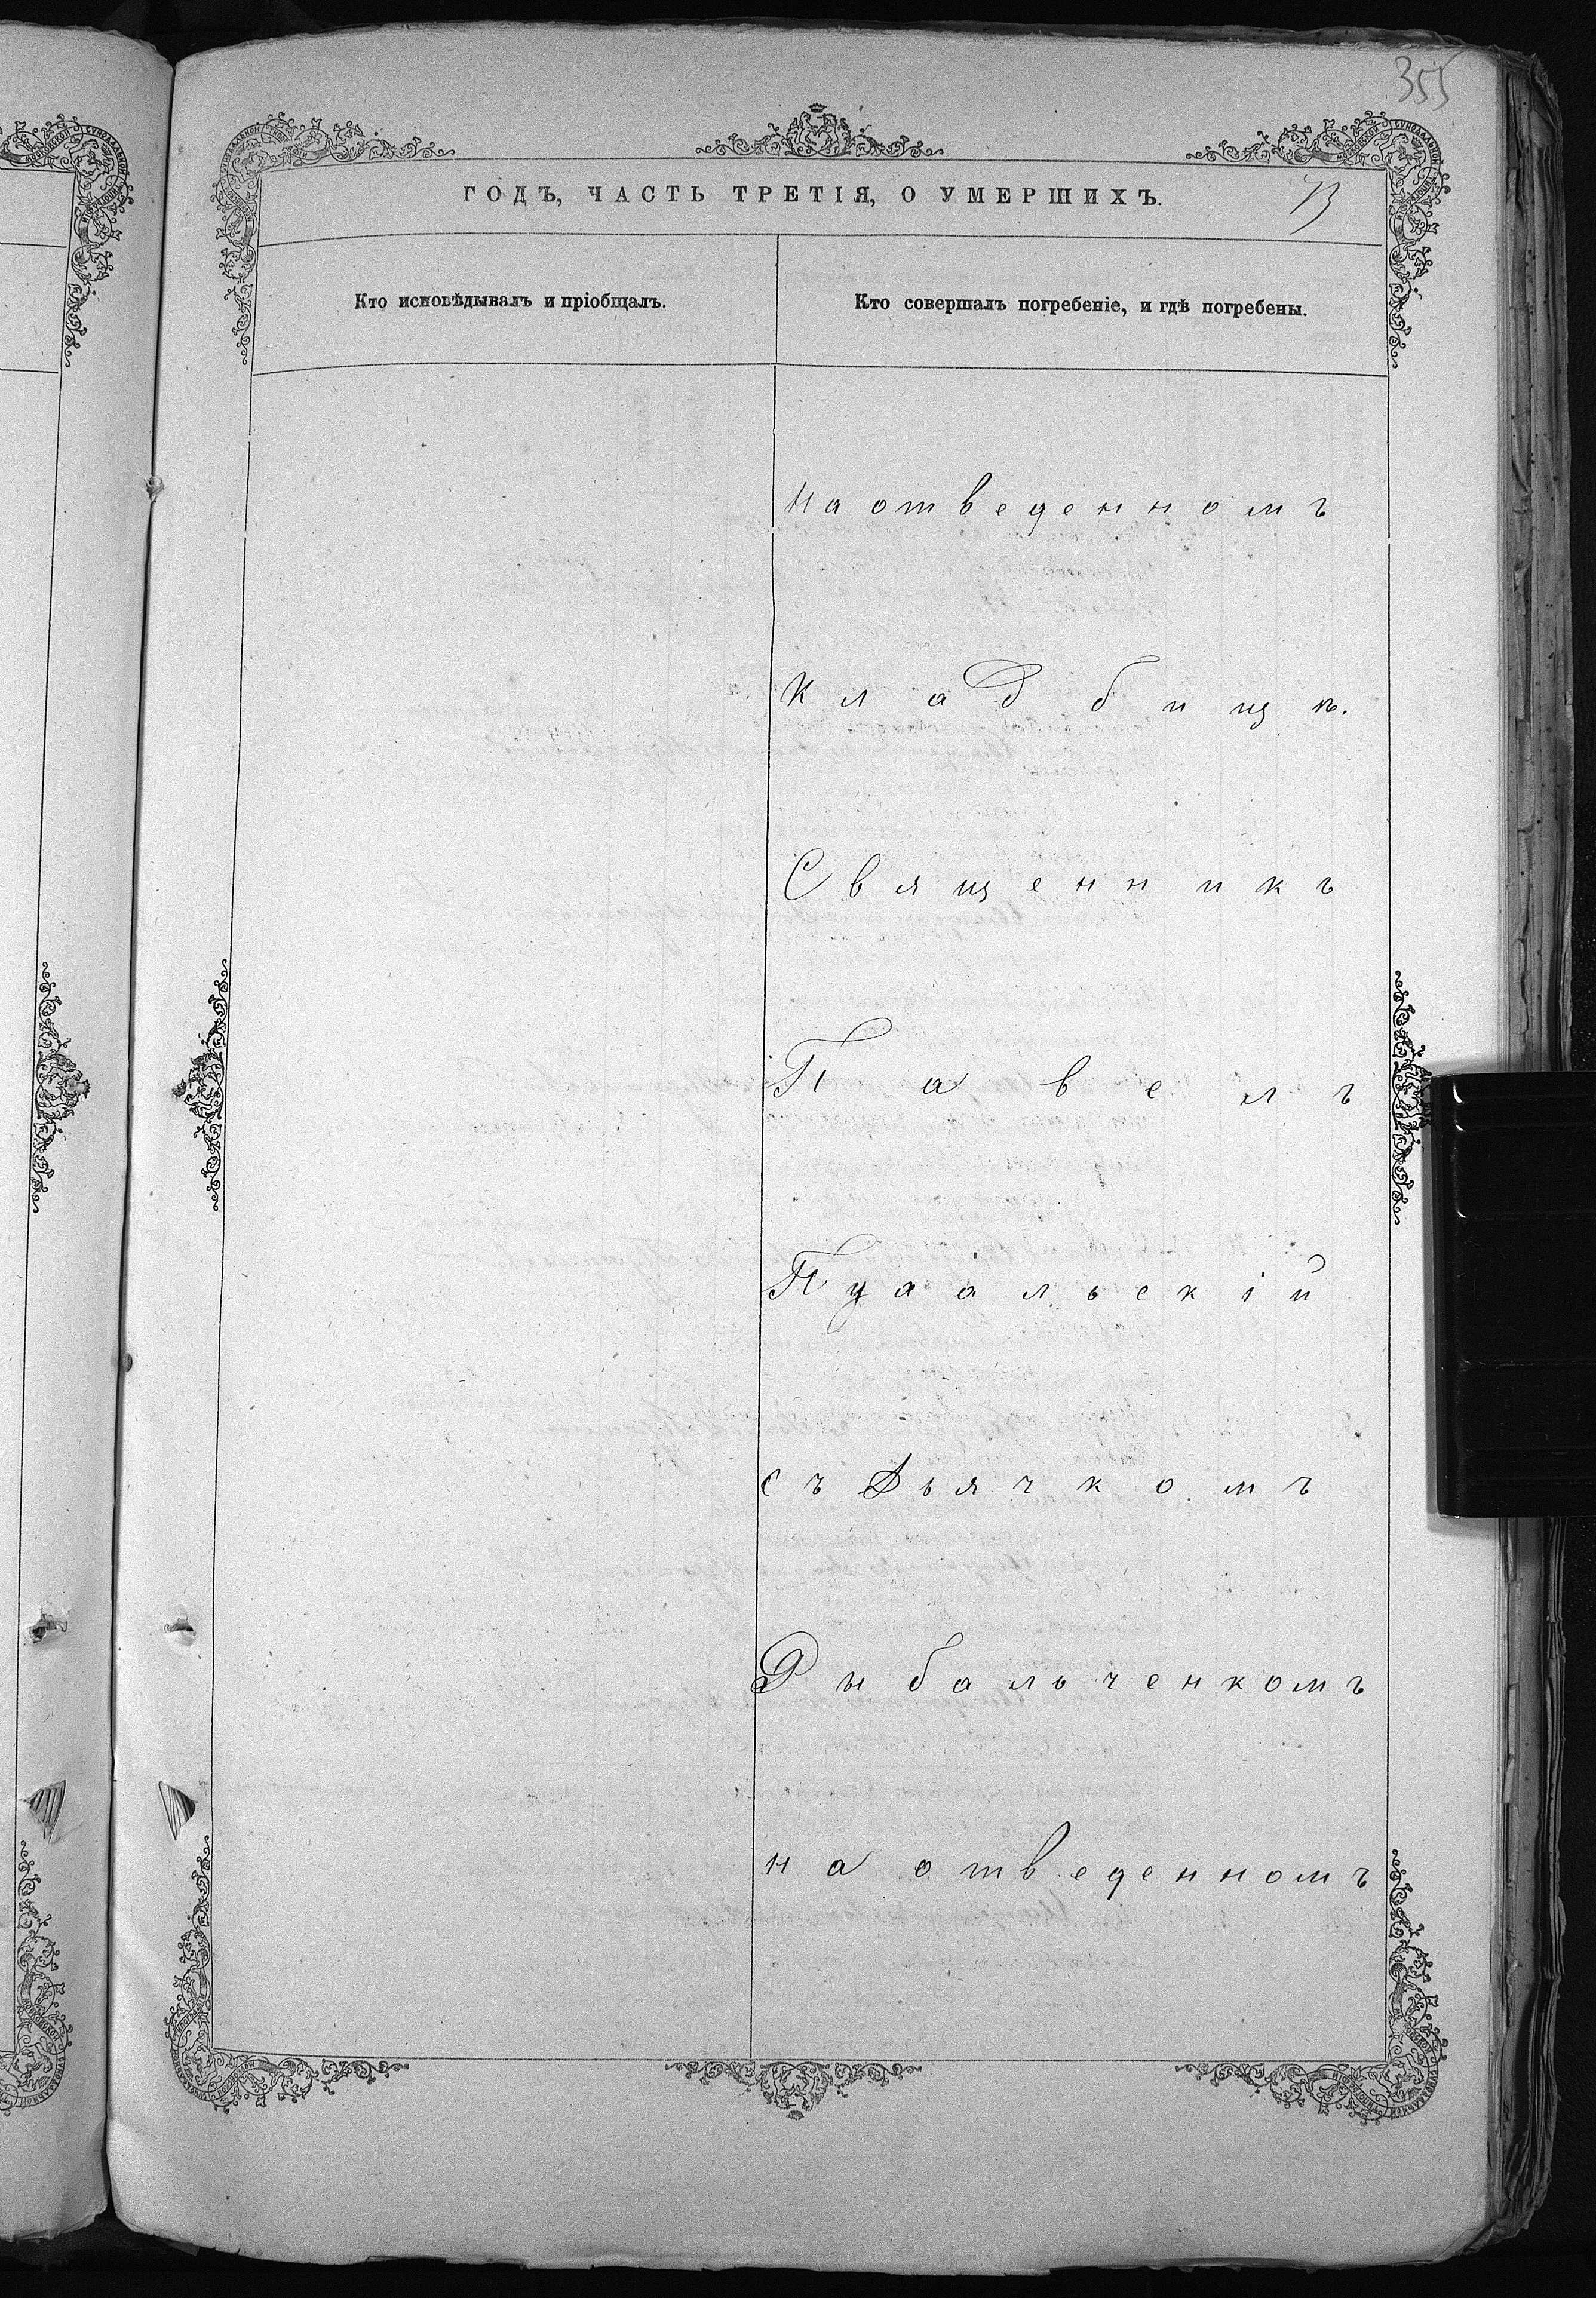 355
ГОДЪ, ЧАСТЬ ТРЕТІЯ, О УМЕРШИХЪ.
Кто исповѣдывалъ и пріобщалъ.
Кто совершалъ погребеніе, и гдѣ погребены.
на отведенномъ
кладбищѣ.
Священникъ
Павелъ
съ Дьячкомъ
Рыбальченкомъ
на отведенномъ